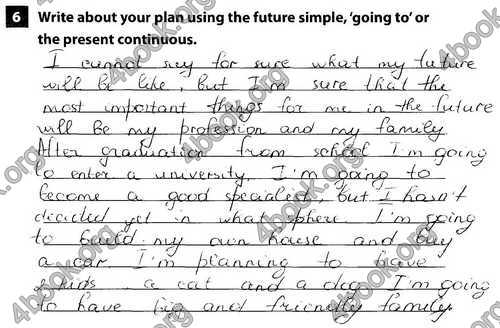 6 Write about your plan using the future simple, 'going to' or
the present continuous.
I cannot say for sure what my future
will be like, but I'm sure that the
most important things for me in the future
will be my profession and my family.
After graduation from school I'm going
to enter a university. I'm going to
become a good specialist, but I hasn't
decided yet in what sphere. I'm going
to build my own house and buy
a car. I'm planning to have
kids, a cat and a dog. I'm going
to have big and friendly family.
4book.org